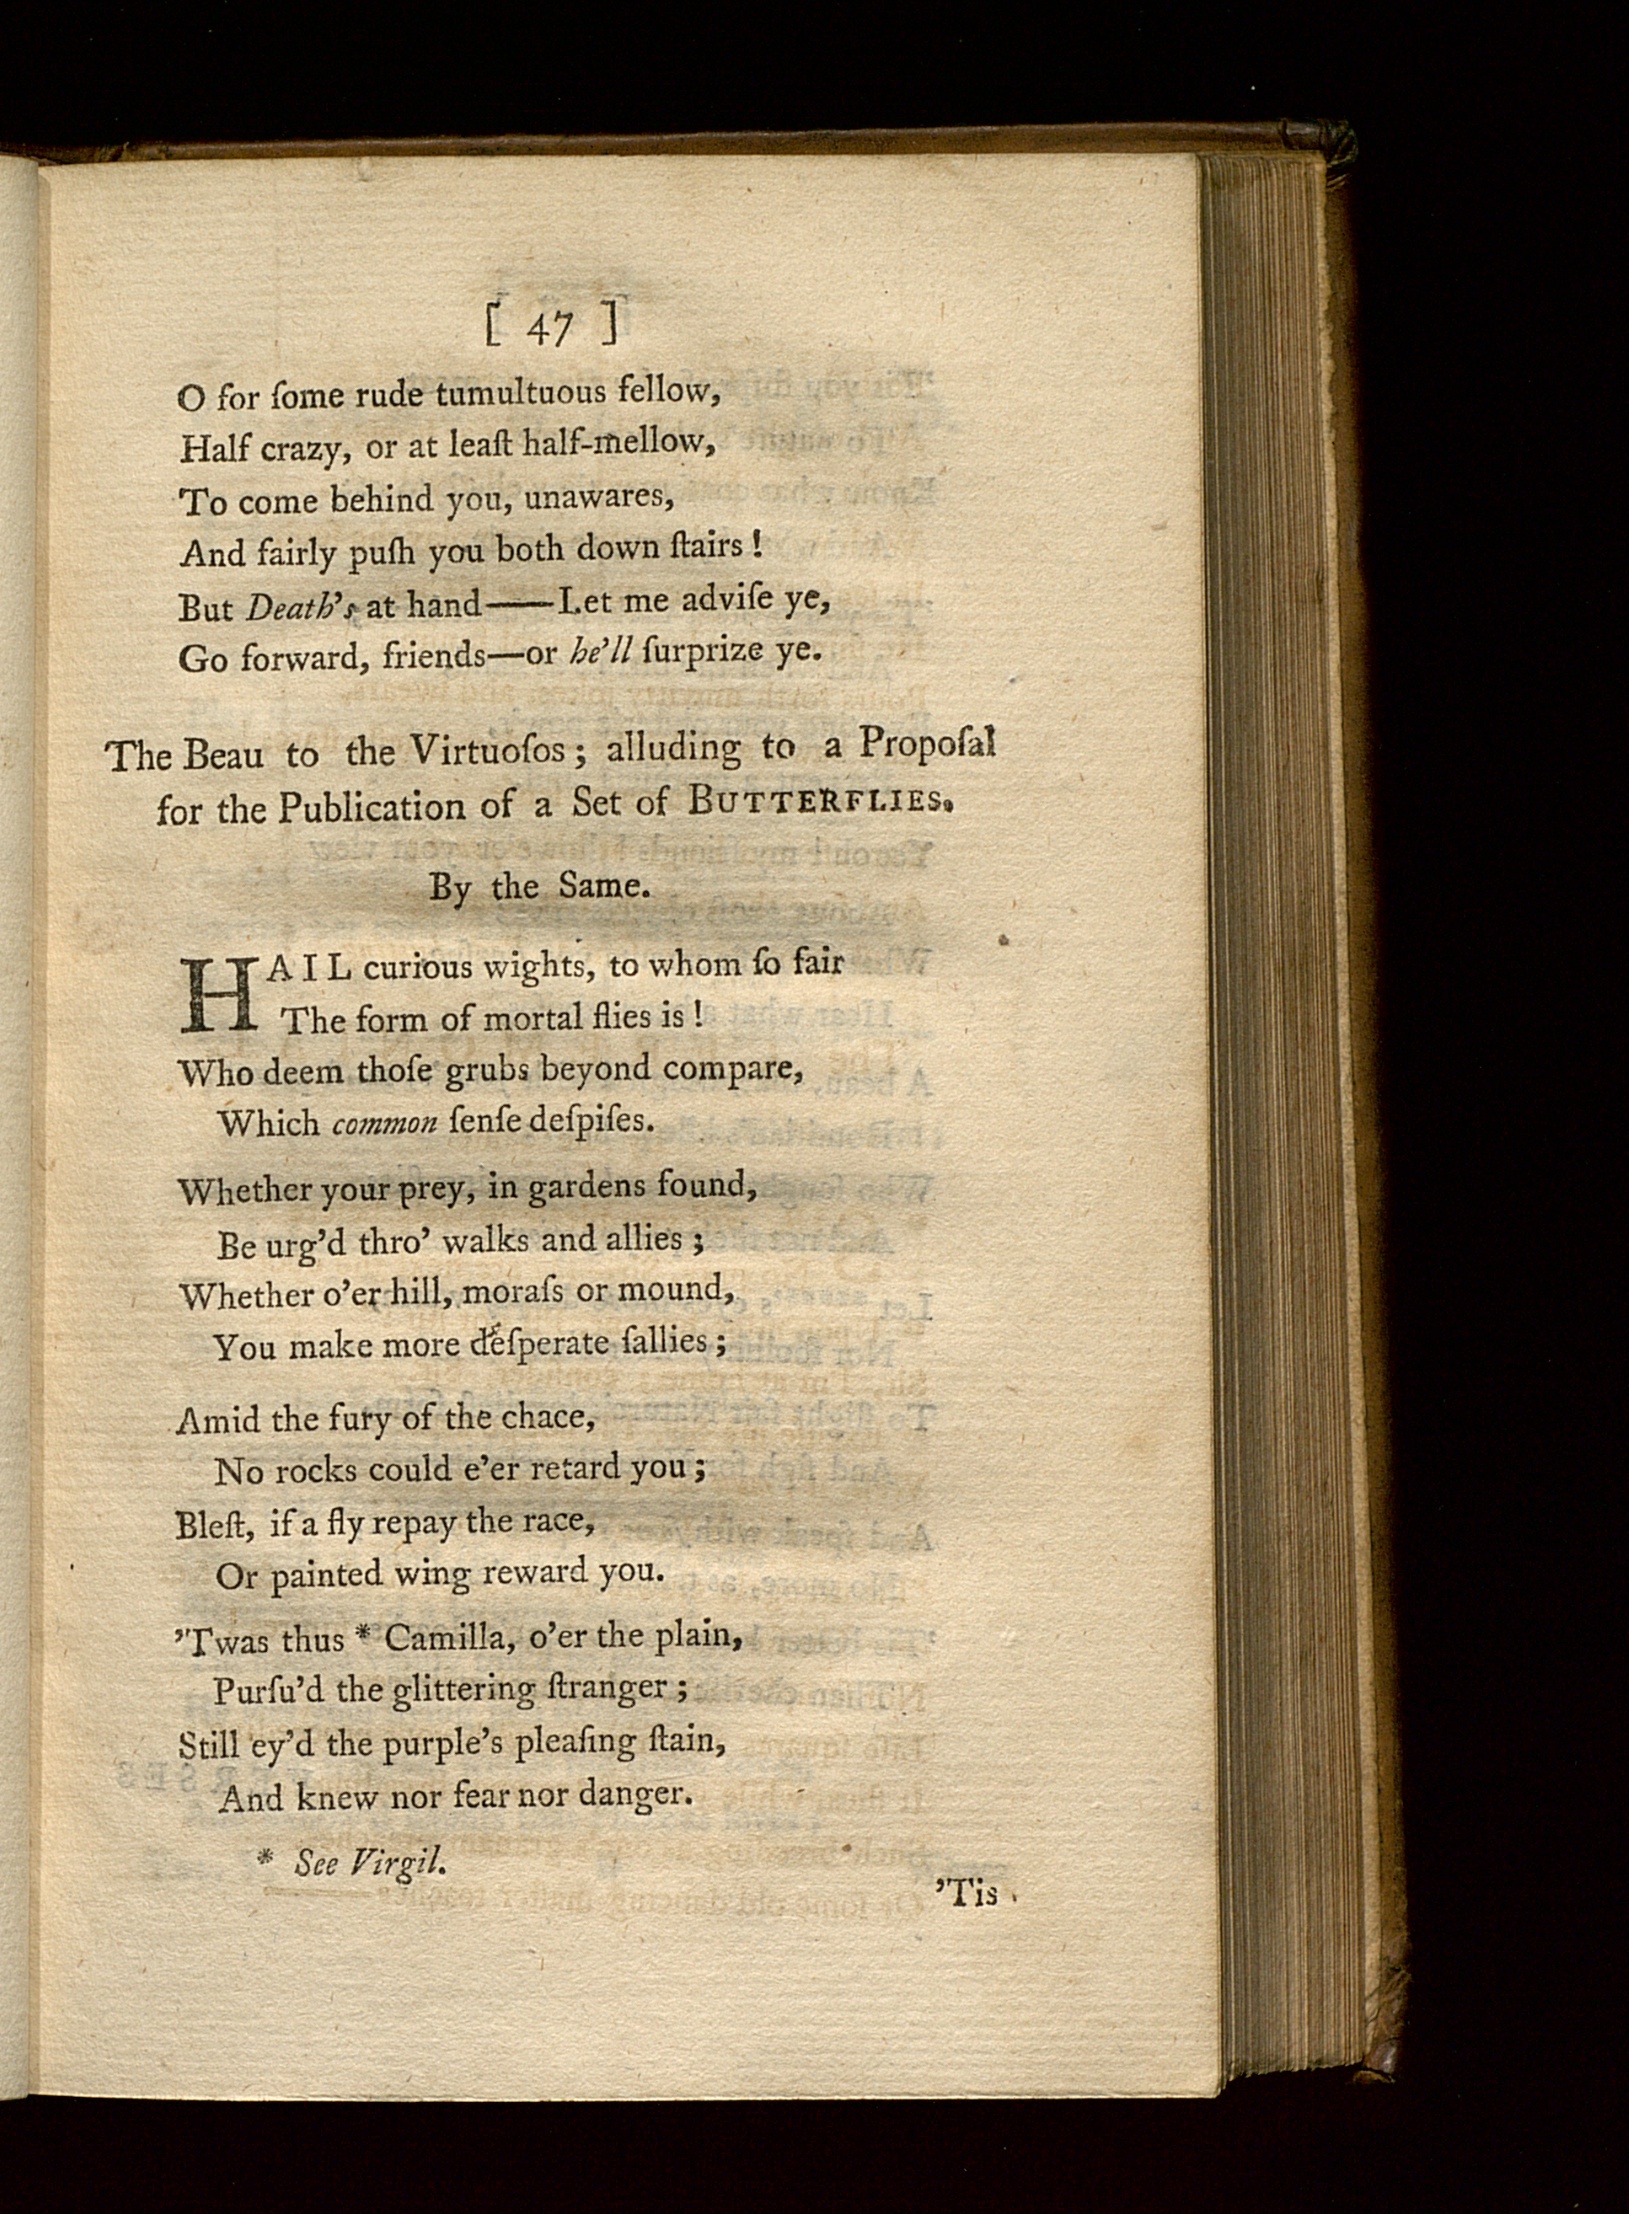 [ 47 ]
O for ſome rude tumultuous fellow,
Half crazy, or at leaſt half-mellow,
To come behind you, unawares,
And fairly puſh you both down ſtairs !
But Death's at hand——Let me adviſe ye,
Go forward, friends—or he'll ſurprize ye.
The Beau to the Virtuoſos ; alluding to a Propoſal
for the Publication of a Set of BUTTERFLIES.
By the Same.
HAIL curious wights, to whom ſo fair
The form of mortal flies is !
Who deem thoſe grubs beyond compare,
Which common ſenſe deſpiſes.
Whether your prey, in gardens found,
Be urg'd thro' walks and allies ;
Whether o'er hill, moraſs or mound,
You make more deſperate ſallies ;
Amid the fury of the chace,
No rocks could e'er retard you ;
Bleſt, if a fly repay the race,
Or painted wing reward you.
'Twas thus * Camilla, o'er the plain,
Purſu'd the glittering ſtranger ;
Still ey'd the purple's pleaſing ſtain,
And knew nor fear nor danger.
* See Virgil.
'Tis